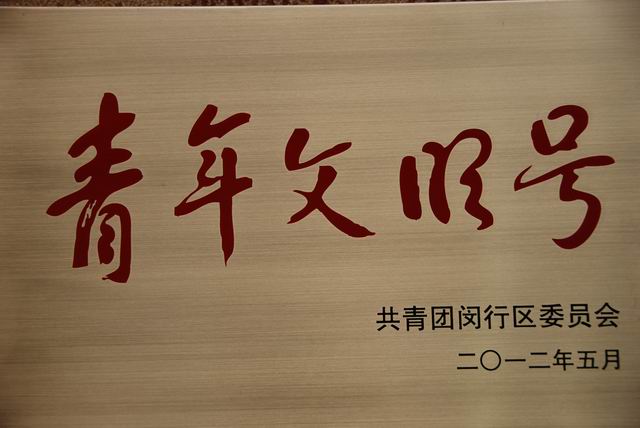 青年文明号
共青团闵行区委员会
二〇一二年五月